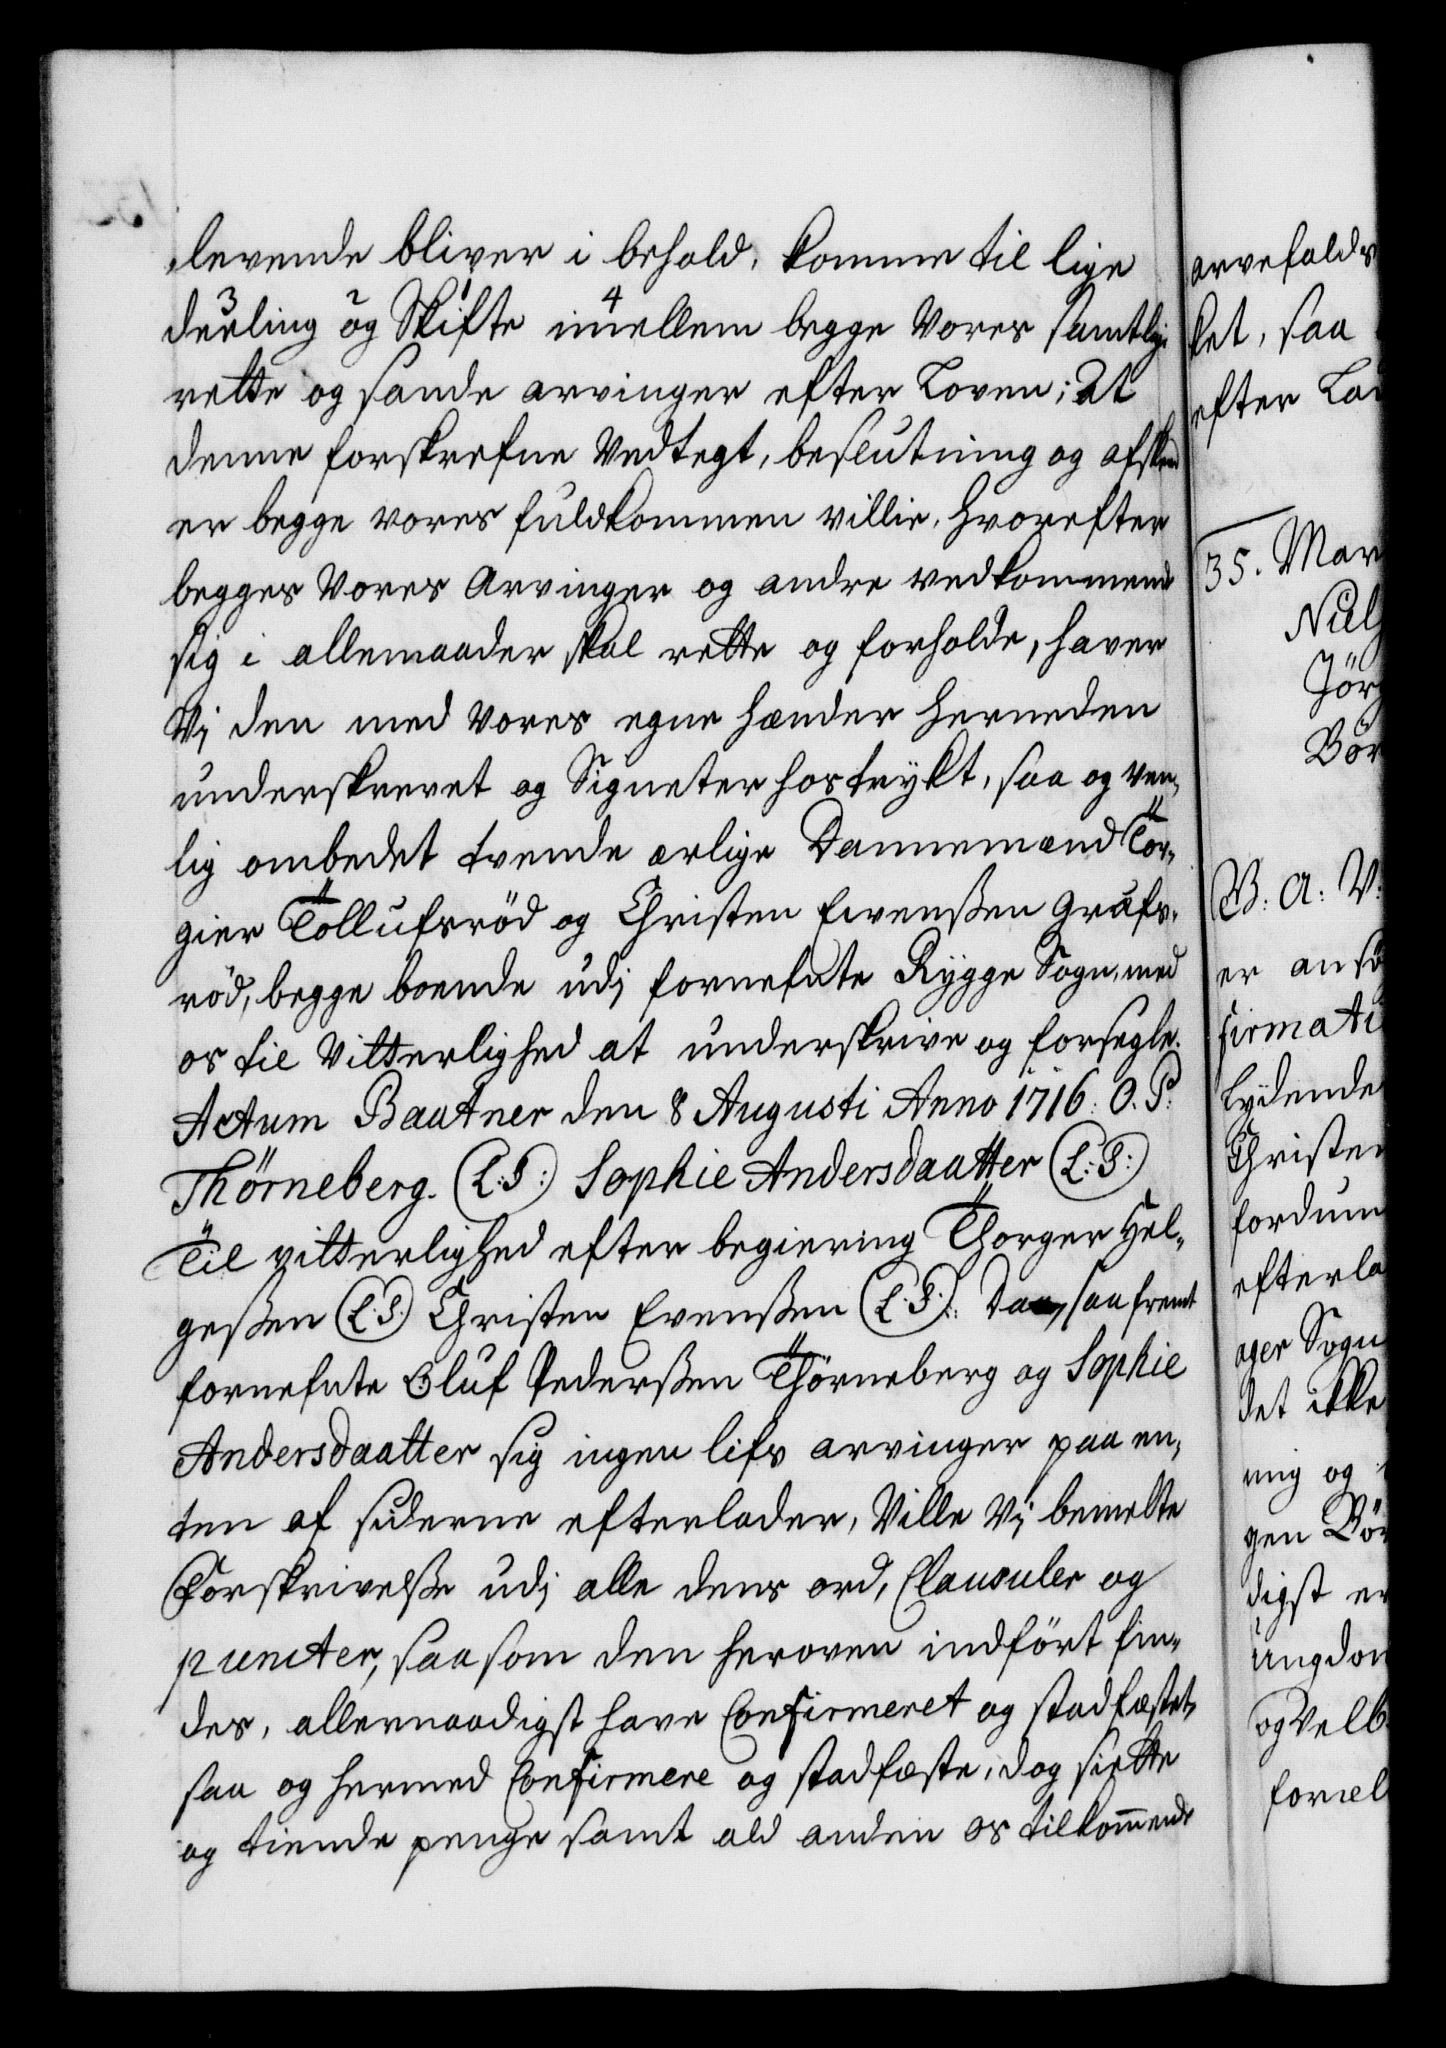 levende bliver i behold, komme til lige
deeling og Skifte imellem begge Vores samtlig
rette og sande arvinger efter Loven; At
denne forskrefne Vedtegt, beslutning og afskeed
er begge vores fuldkommen villie, hvorefter
begges Vores Arvinger og andre vedkommende
sig i allemaader skal rette og forholde, haver
Vi den med Vores egne hænder herneden
underskrevet og Signeter hostrykt, saa og ven„
lig ombedet tvende ærlige Dannemænd Tor„
gier Tollufsröd og Christen Evenssen Grafs„
röd, begge boende udj fornefnte Rygge Sogn, med
os til Vitterlighed at underskrive og forsegle.
Actum Baatner den 8 Augusti Anno 1716. O. P.
Thörneberg. (L.S:) Sophie Andersdaatter (L:S:)
Til vitterlighed efter begiering Thorger Hel„
gessen (L.S.) Christen Evenssen (L.S.):. Da, saafremt
fornefnte Oluf Pederssen Thörneberg og Sophie
Andersdaatter sig ingen lifs arvinger paa en„
ten af siderne efterlader, Ville Vi bemelte
Forskrivelsse udj alle dens ord, Clausuler og
puncter, saasom den heroven indfört fin„
des, allernaadigst have Confirmeret og stadfæstet,
saa og hermed Confirmere og stadfæste, dog siette
og tiende penge samt ald anden os tilkommende
arvefalds
ket, saa
efter Lov
35. Mar
Niel
Jör
Bör
V: A: V:
er ansö
firmati
Lydende
Christen
fordum
efterla
ager Sogn
det ikke
mig og
gen Bör
digst er
ungdom
og Velb.
foræl